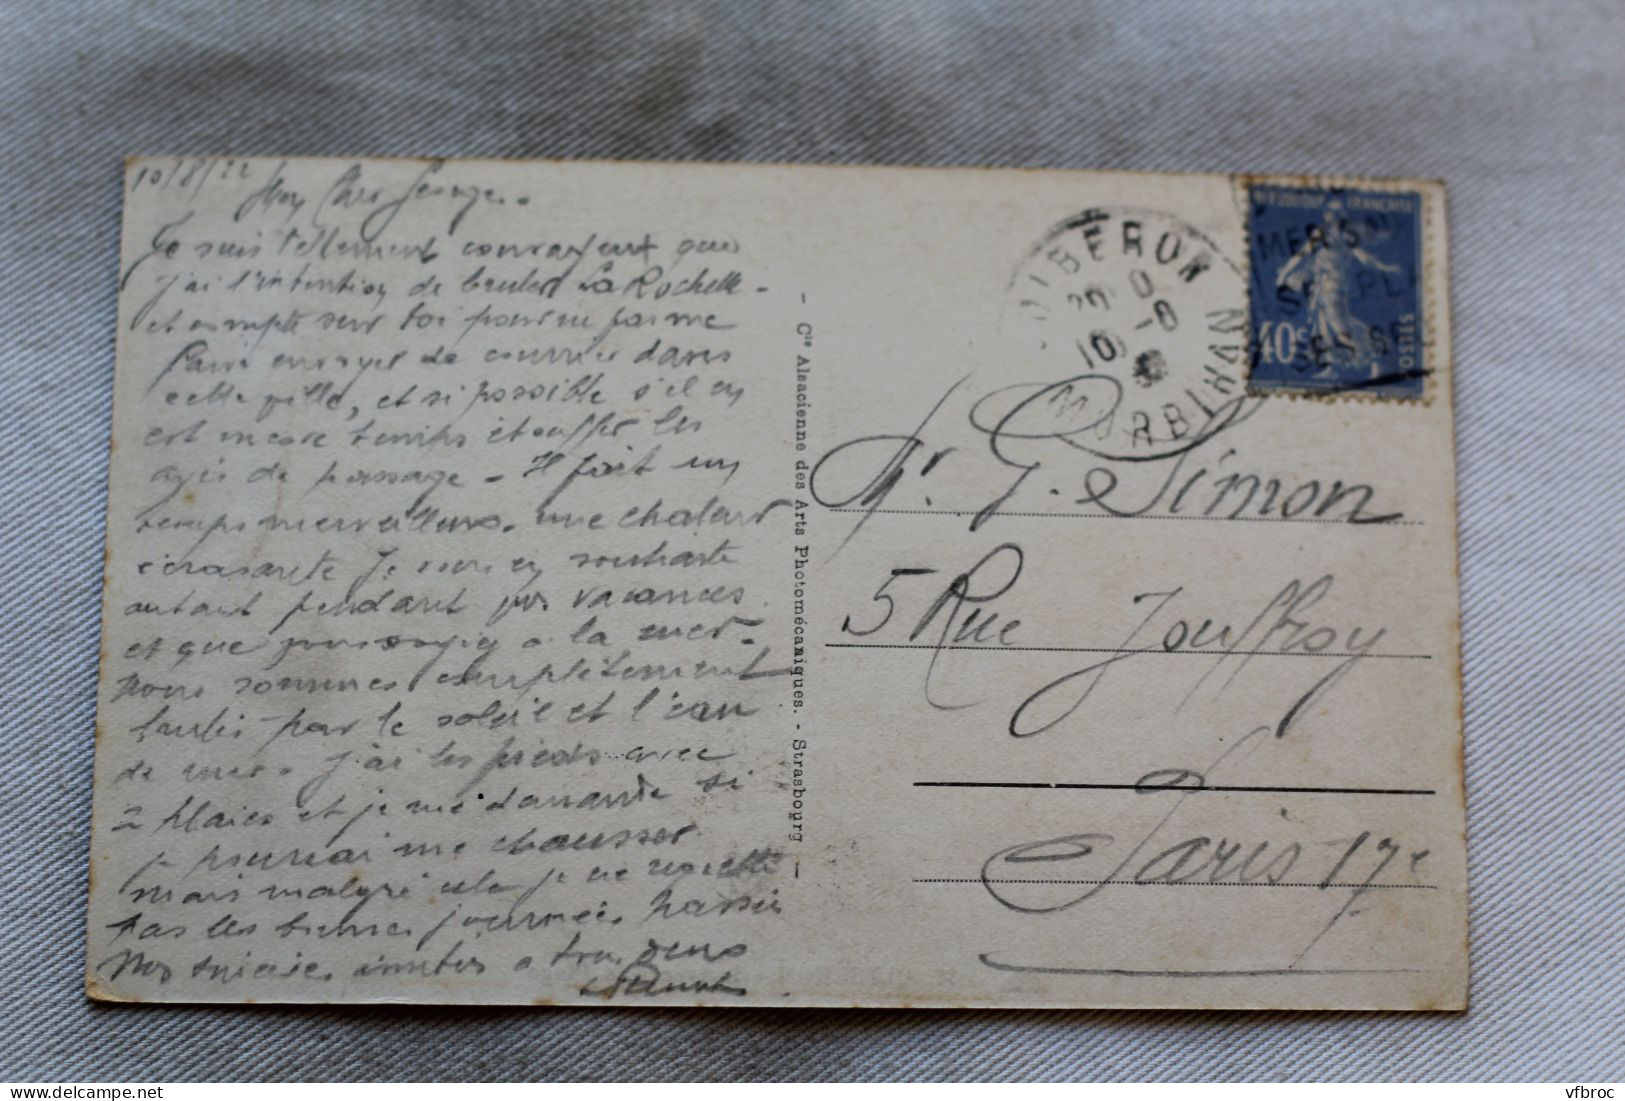 10/8/22
Mon Cher George.
Je suis tellement que
j'ai l'intention de bruler La Rochelle -
et compte sur toi pour ne pas me
faire envoyer de courrier dans
cette ville, et si possible s'il en
est encore temps étouffer les
avis de passage - Il fait un
temps merveilleux. une chaleur
écrasante Je vous en souhaite
autant pendant vos vacances
et que vous soyez à la mer -
Nous sommes complètement
par le soleil et l'eau
de mer. J'ai les pieds avec
2 plaies et je me demande si
je pourrai me chausser
mais malgré cela je ne regrette
pas les bonnes journées passées
Nos amitiés à tous deux
QUIBERON
MORBIHAN
10
REPUBLIQUE FRANÇAISE
40c
POSTES
MER SA
SES
Mr. G. Simon
5 Rue Jouffroy
Paris 17e
- Cie Alsacienne des Arts Photomécaniques. - Strasbourg -
vfbroc